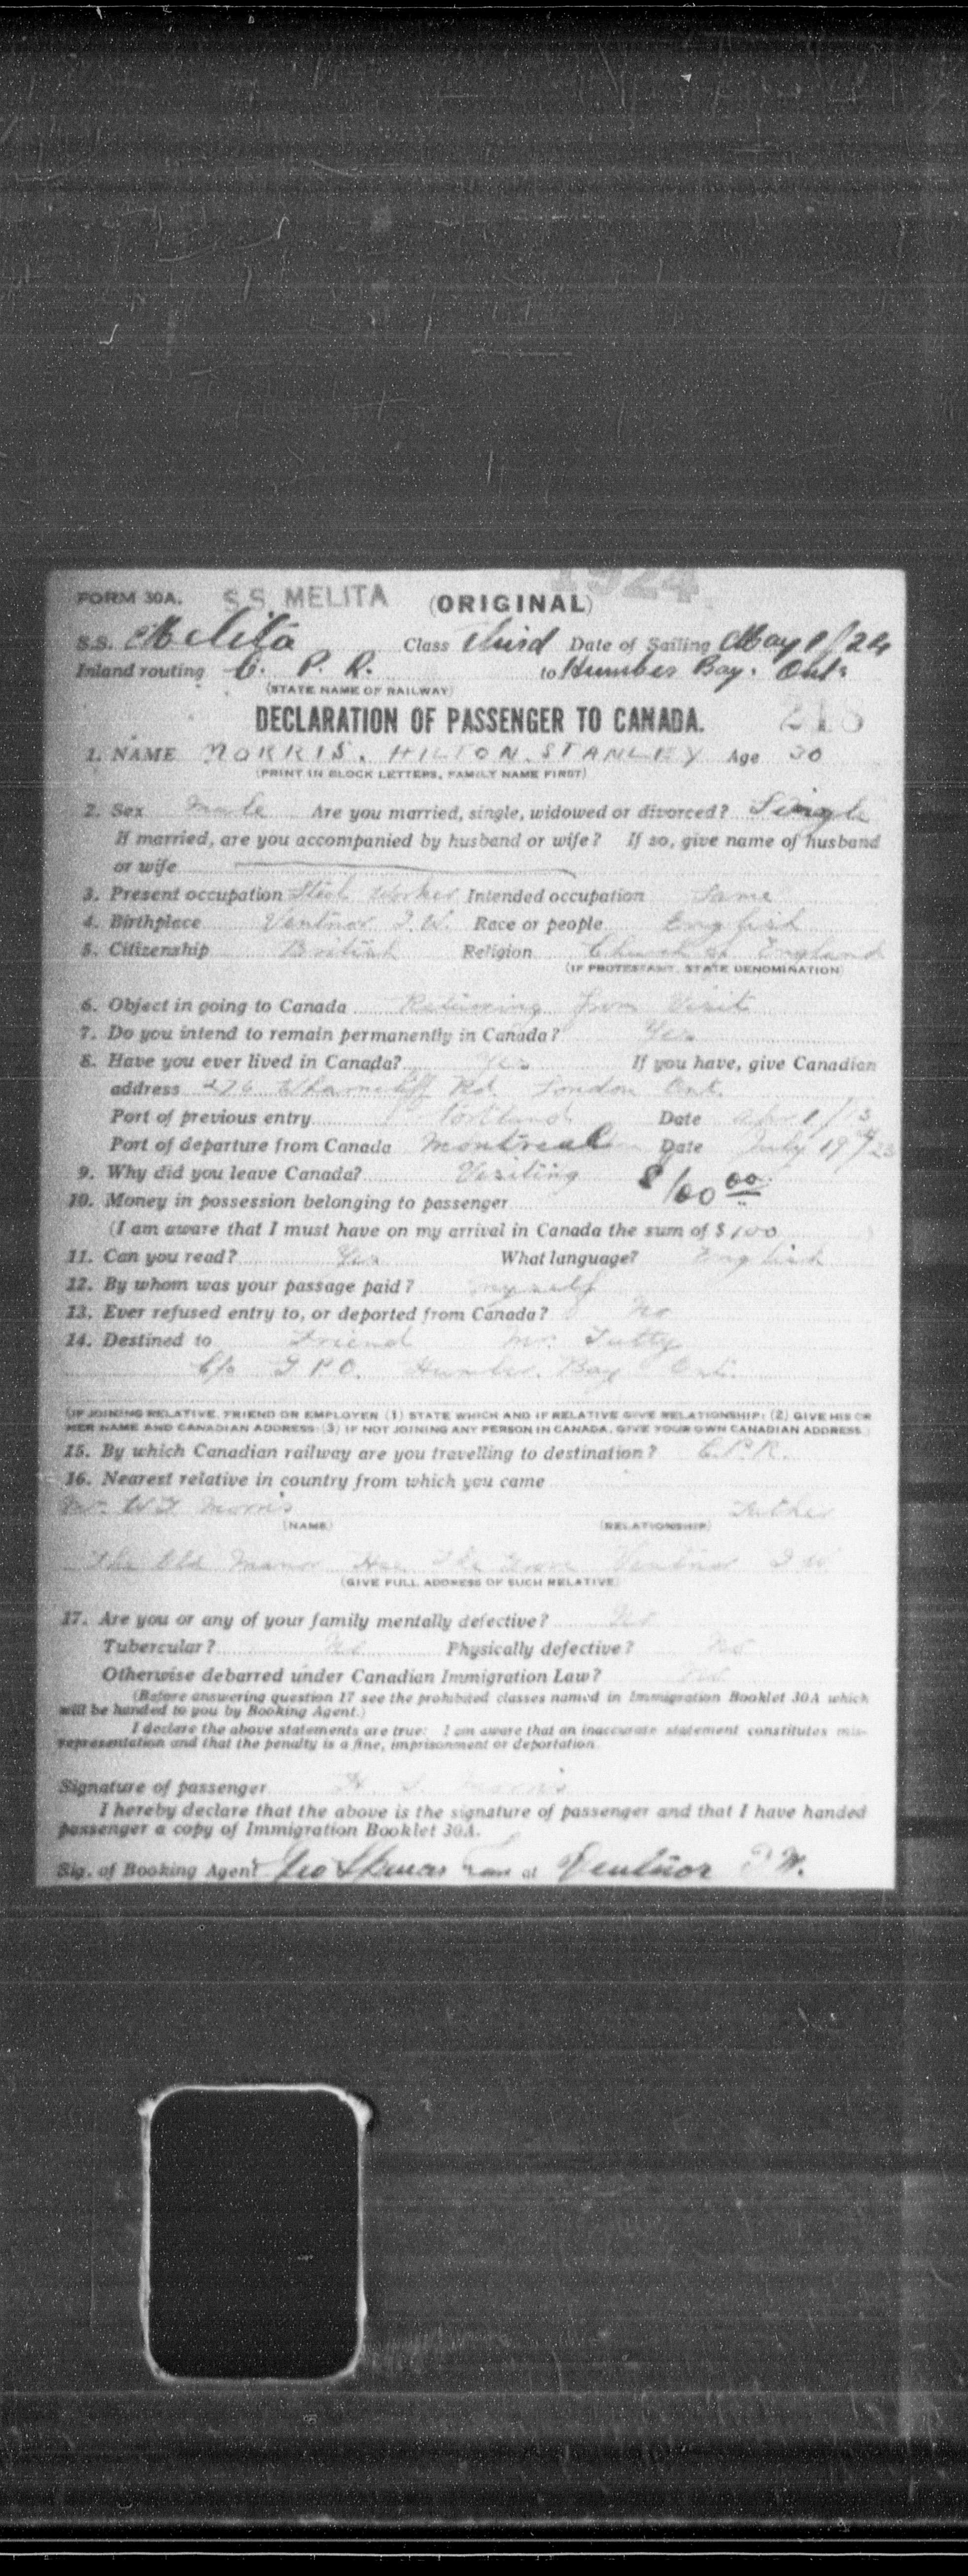 1924
FORM 30A. S.S. MELITA (ORIGINAL)
S.S. Melita Class Third Date of Sailing May 1/24
Inland routing C. P. R. to Humber Bay. Ont.
(STATE NAME OF RAILWAY)
DECLARATION OF PASSENGER TO CANADA. 218
1. NAME MORRIS. HILTON. STANLEY Age 30
(PRINT IN BLOCK LETTERS, FAMILY NAME FIRST)
2. Sex Male Are you married, single, widowed or divorced? Single
If married, are you accompanied by husband or wife? If so, give name of husband
or wife
3. Present occupation Steel Worker Intended occupation Same
4. Birthplace Ventnor I.W. Race or people English
5. Citizenship British Religion Church of England
(IF PROTESTANT, STATE DENOMINATION)
6. Object in going to Canada Returning from Visit
7. Do you intend to remain permanently in Canada? Yes
8. Have you ever lived in Canada? Yes If you have, give Canadian
address 276 Wharncliff Rd. London Ont.
Port of previous entry Portland Date
Port of departure from Canada Montreal Date July 19
9. Why did you leave Canada? Visiting
10. Money in possession belonging to passenger $100 00
(I am aware that I must have on my arrival in Canada the sum of $ 100 )
11. Can you read? Yes What language? English
12. By whom was your passage paid? myself
13. Ever refused entry to, or deported from Canada? No
14. Destined to Friend Mr. Tutty
C/o G.P.O. Humber Bay Ont.
(IF JOINING RELATIVE, FRIEND OR EMPLOYER (1) STATE WHICH AND IF RELATIVE GIVE RELATIONSHIP: (2) GIVE HIS OR
HER NAME AND CANADIAN ADDRESS: (3) IF NOT JOINING ANY PERSON IN CANADA, GIVE YOUR OWN CANADIAN ADDRESS.)
15. By which Canadian railway are you travelling to destination? C.P.R.
16. Nearest relative in country from which you came
Mr. Morris Father
(NAME) (RELATIONSHIP)
The Old Manor Hse The Grove Ventnor I W
(GIVE FULL ADDRESS OF SUCH RELATIVE)
17. Are you or any of your family mentally defective? No
Tubercular? No Physically defective? No
Otherwise debarred under Canadian Immigration Law? No
(Before answering question 17 see the prohibited classes named in Immigration Booklet 30A which
will be handed to you by Booking Agent.)
I declare the above statements are true: I am aware that an inaccurate statement constitutes mis-
representation and that the penalty is a fine, imprisonment or deportation.
Signature of passenger H. S. Morris
I hereby declare that the above is the signature of passenger and that I have handed
passenger a copy of Immigration Booklet 30A.
Sig. of Booking Agent Geo at Ventnor I.W.